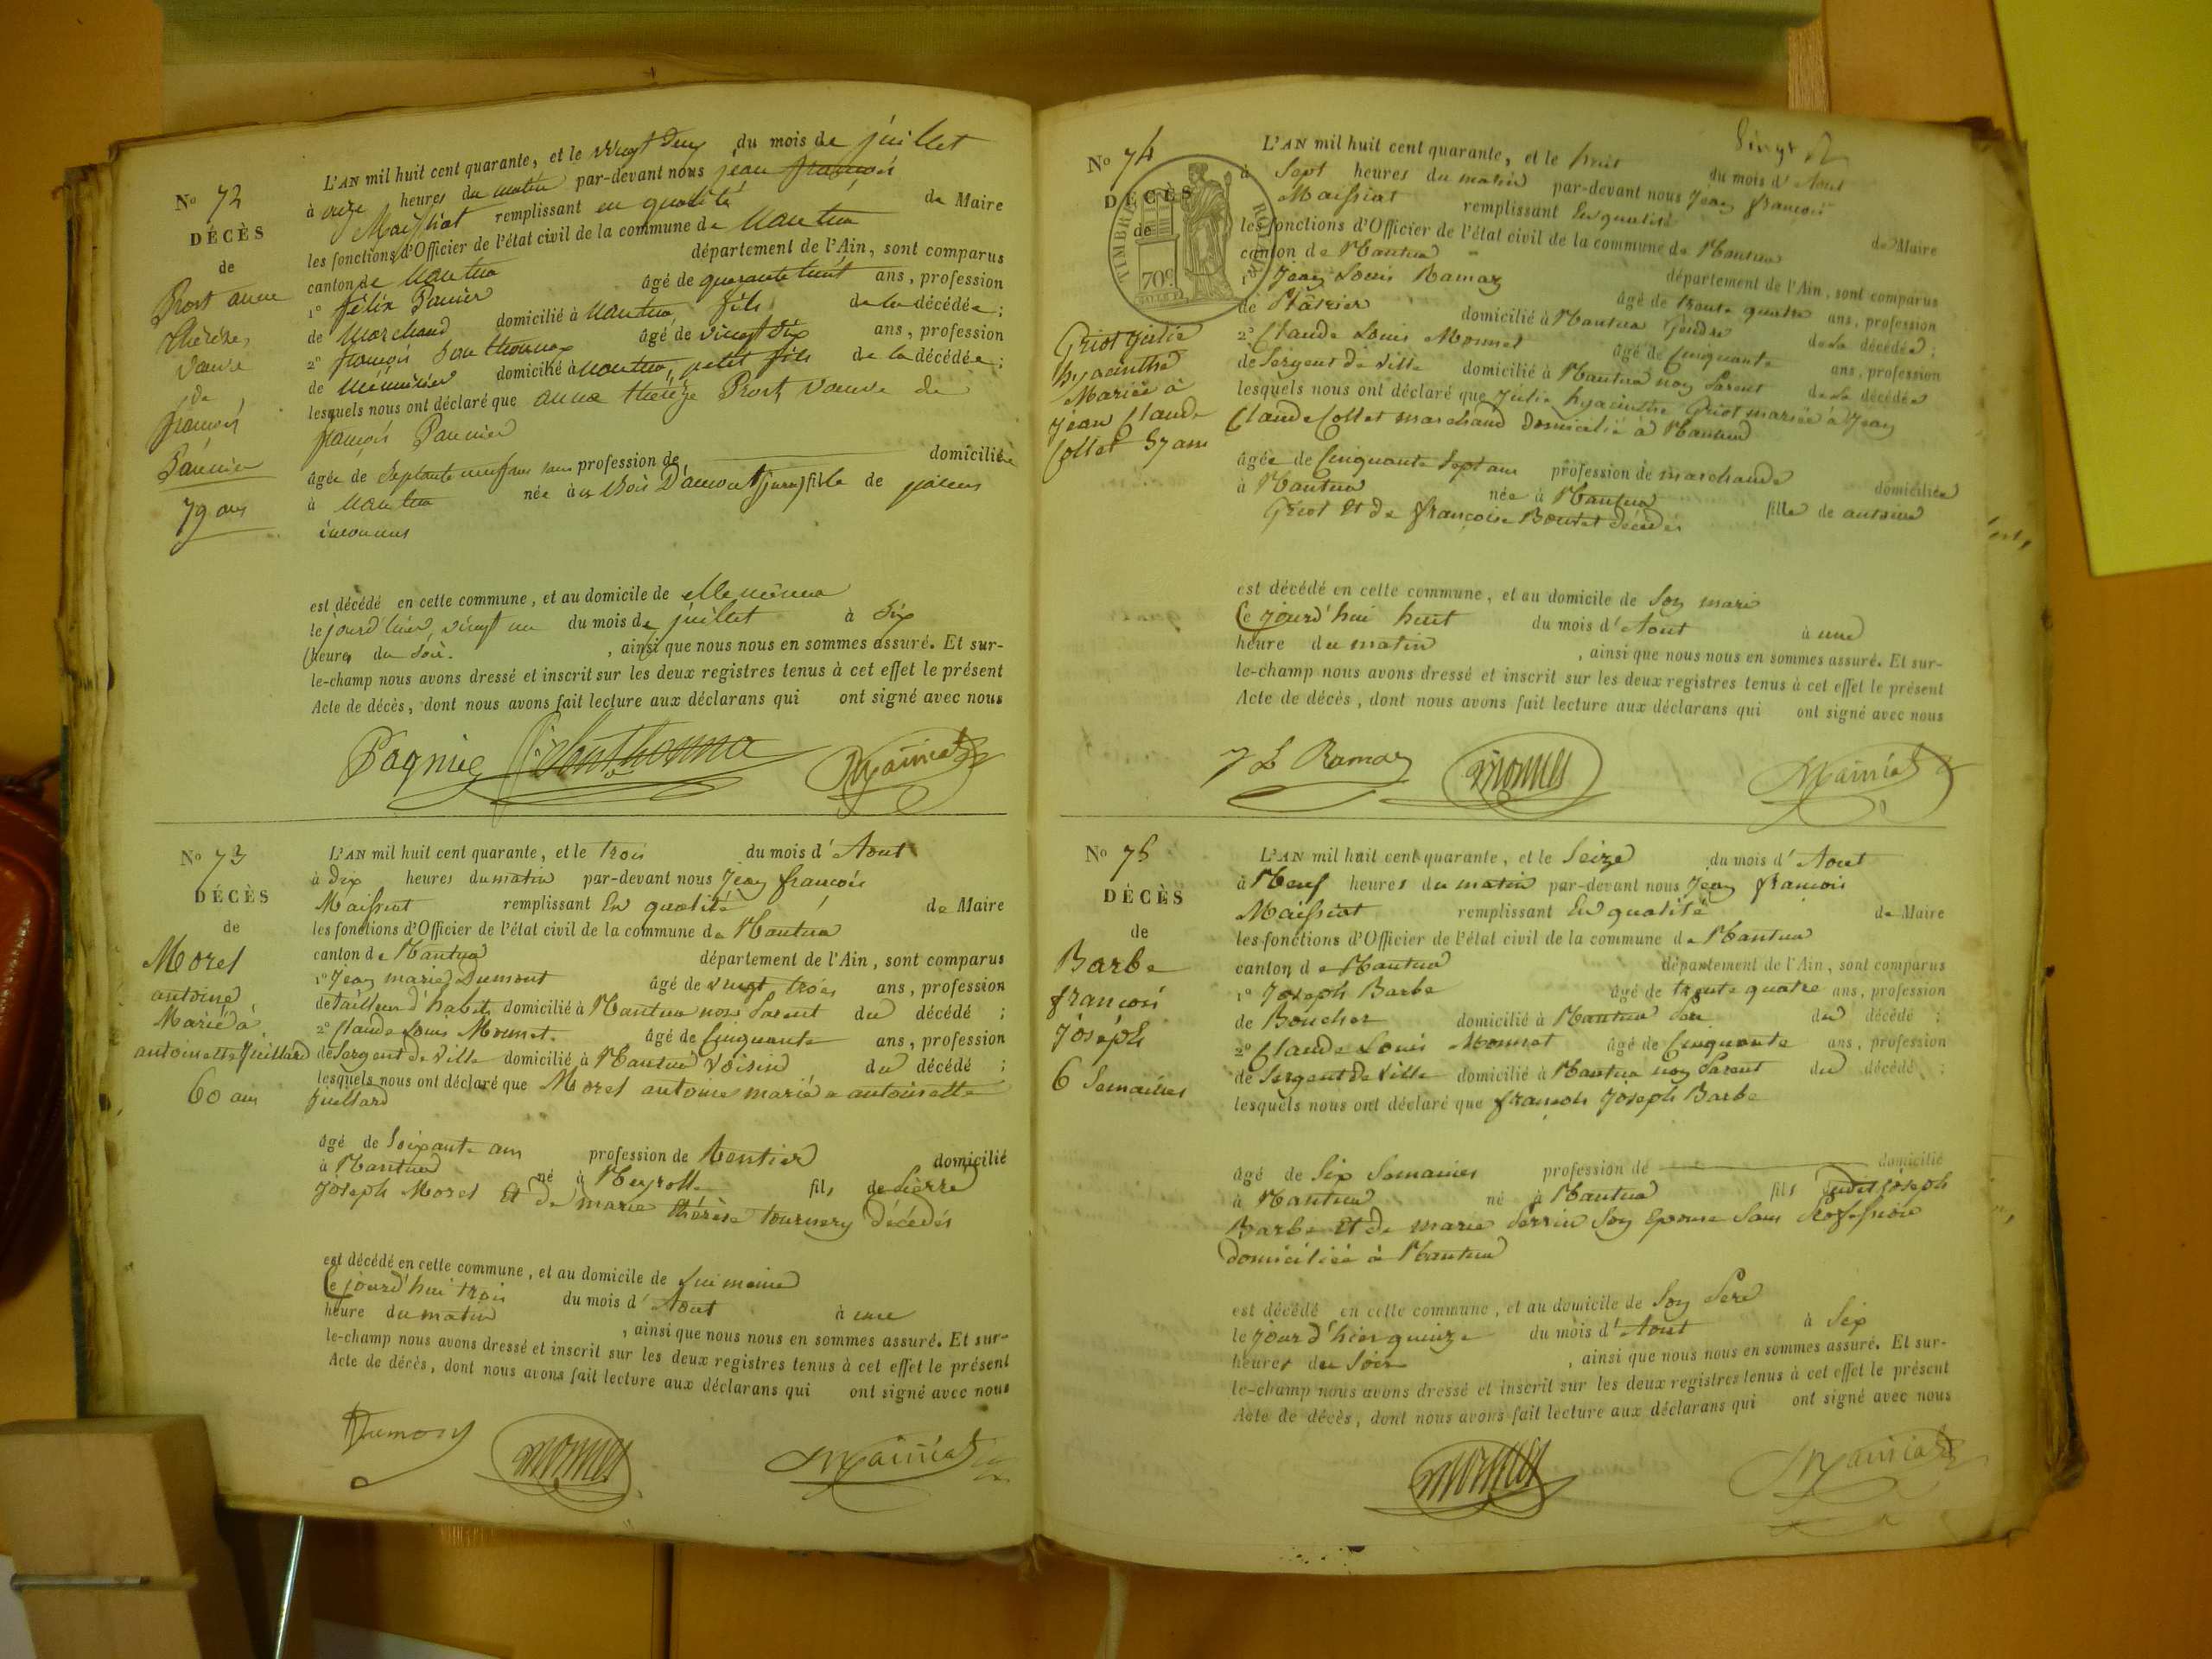 No 72
DÉCÈS
de
Prost anne
thérèze,
veuve
de
françois
Paunier
79 ans
L'AN mil huit cent quarante, et le vingt deux du mois de juillet
à onze heures du matin par-devant nous jean françois
Maissiat remplissant en qualité de Maire
les fonctions d'Officier de l'état civil de la commune de Nantua
canton de Nantua département de l'Ain, sont comparus
1° félix Panier âgé de quarante huit ans, profession
de Marchand domicilié à Nantua, fils de la décédée;
2° françois âgé de vingt six ans, profession
de Ménuisier domicilié à Nantua, petit fils de la décédée;
lesquels nous ont déclaré que anne thérèze Prost veuve de
françois Paunier
âgée de septante neuf ans sans profession de domiciliée
à Nantua née à Bois D'amont (jura) fille de parens
inconnus
est décédé en cette commune, et au domicile de elle même
le jourd'hier, vingt un du mois de juillet à six
heures du soir. , ainsi que nous nous en sommes assuré. Et sur-
le-champ nous avons dressé et inscrit sur les deux registres tenus à cet effet le présent
Acte de décès, dont nous avons fait lecture aux déclarans qui ont signé avec nous
Pagnie Maissiat
No 73
DÉCÈS
de
Morel
antoine
Marié à
antoinette Juillard
60 ans
L'AN mil huit cent quarante, et le trois du mois d'Aout
à dix heures du matin par-devant nous Jean françois
Maissiat remplissant En qualité de Maire
les fonctions d'Officier de l'état civil de la commune de Nantua
canton de Nantua département de l'Ain, sont comparus
1° Jean marie Dumont âgé de vingt trois ans, profession
de tailleur d'habits domicilié à Nantua non Parent du décédé ;
2° Claude Louis Monnet âgé de Cinquante ans, profession
de Sergent de Ville domicilié à Nantua Voisin du décédé ;
lesquels nous ont déclaré que Morel antoine marié a antoinette
juillard
âgé de Soixante ans profession de Rentier domicilié
à Nantua né à Neyrolle fils de Pierre
Joseph Morel Et de marie thérèse tournery décédés
est décédé en cette commune, et au domicile de Lui même
Ce jourd'hui trois du mois d'Aout à une
heure du matin , ainsi que nous nous en sommes assuré. Et sur-
le-champ nous avons dressé et inscrit sur les deux registres tenus à cet effet le présent
Acte de décès, dont nous avons fait lecture aux déclarans qui ont signé avec nous
Dumont Monnet Maissiat
No 74
DÉCÈS
de
TIMBRE ROYAL
70c
Griot Julie
hyacinthe
Mariée à
Jean Claude
Collet 57 ans
L'AN mil huit cent quarante, et le huit du mois d'Aout
à Sept heures du matin par-devant nous Jean françois
Maissiat remplissant En qualité de Maire
les fonctions d'Officier de l'état civil de la commune de Nantua
canton de Nantua département de l'Ain, sont comparus
1° Jean Louis Ramaz âgé de trente quatre ans, profession
de Plâtrier domicilié à Nantua Gendre de la décédée;
2° Claude Louis Monnet âgé de Cinquante ans, profession
de Sergent de Ville domicilié à Nantua non Parent de la décédée
lesquels nous ont déclaré que Julie hyacinthe Griot mariée à Jean
Claude Collet marchand domicilié à Nantua
âgée de Cinquante Sept ans profession de marchande domiciliée
à Nantua née à Nantua fille de antoine
Griot Et de françoise Boutet décédés
est décédé en cette commune, et au domicile de Son mari
Ce jourd'hui huit du mois d'Aout à une
heure du matin , ainsi que nous nous en sommes assuré. Et sur-
le-champ nous avons dressé et inscrit sur les deux registres tenus à cet effet le présent
Acte de décès, dont nous avons fait lecture aux déclarans qui ont signé avec nous
J L Ramaz Monnet Maissiat
No 75
DÉCÈS
de
Barbe
françois
Joseph
6 Semaines
L'AN mil huit cent quarante, et le Seize du mois d'Aout
à Neuf heures du matin par-devant nous Jean françois
Maissiat remplissant En qualité de Maire
les fonctions d'Officier de l'état civil de la commune de Nantua
canton de Nantua département de l'Ain, sont comparus
1° Joseph Barbe âgé de trente quatre ans, profession
de Boucher domicilié à Nantua Père du décédé ;
2° Claude Louis Monnet âgé de Cinquante ans, profession
de Sergent de Ville domicilié à Nantua non Parent du décédé ;
lesquels nous ont déclaré que françois Joseph Barbe
âgé de Six Semaines profession de domicilié
à Nantua né à Nantua fils Joseph
Barbe Et de marie Perrin Son Epouse Sans Profession
domiciliée à Nantua
est décédé en cette commune, et au domicile de Son Père
le jour d'hier quinze du mois d'Aout à Six
heures du Soir , ainsi que nous nous en sommes assuré. Et sur-
le-champ nous avons dressé et inscrit sur les deux registres tenus à cet effet le présent
Acte de décès, dont nous avons fait lecture aux déclarans qui ont signé avec nous
Monnet Maissiat